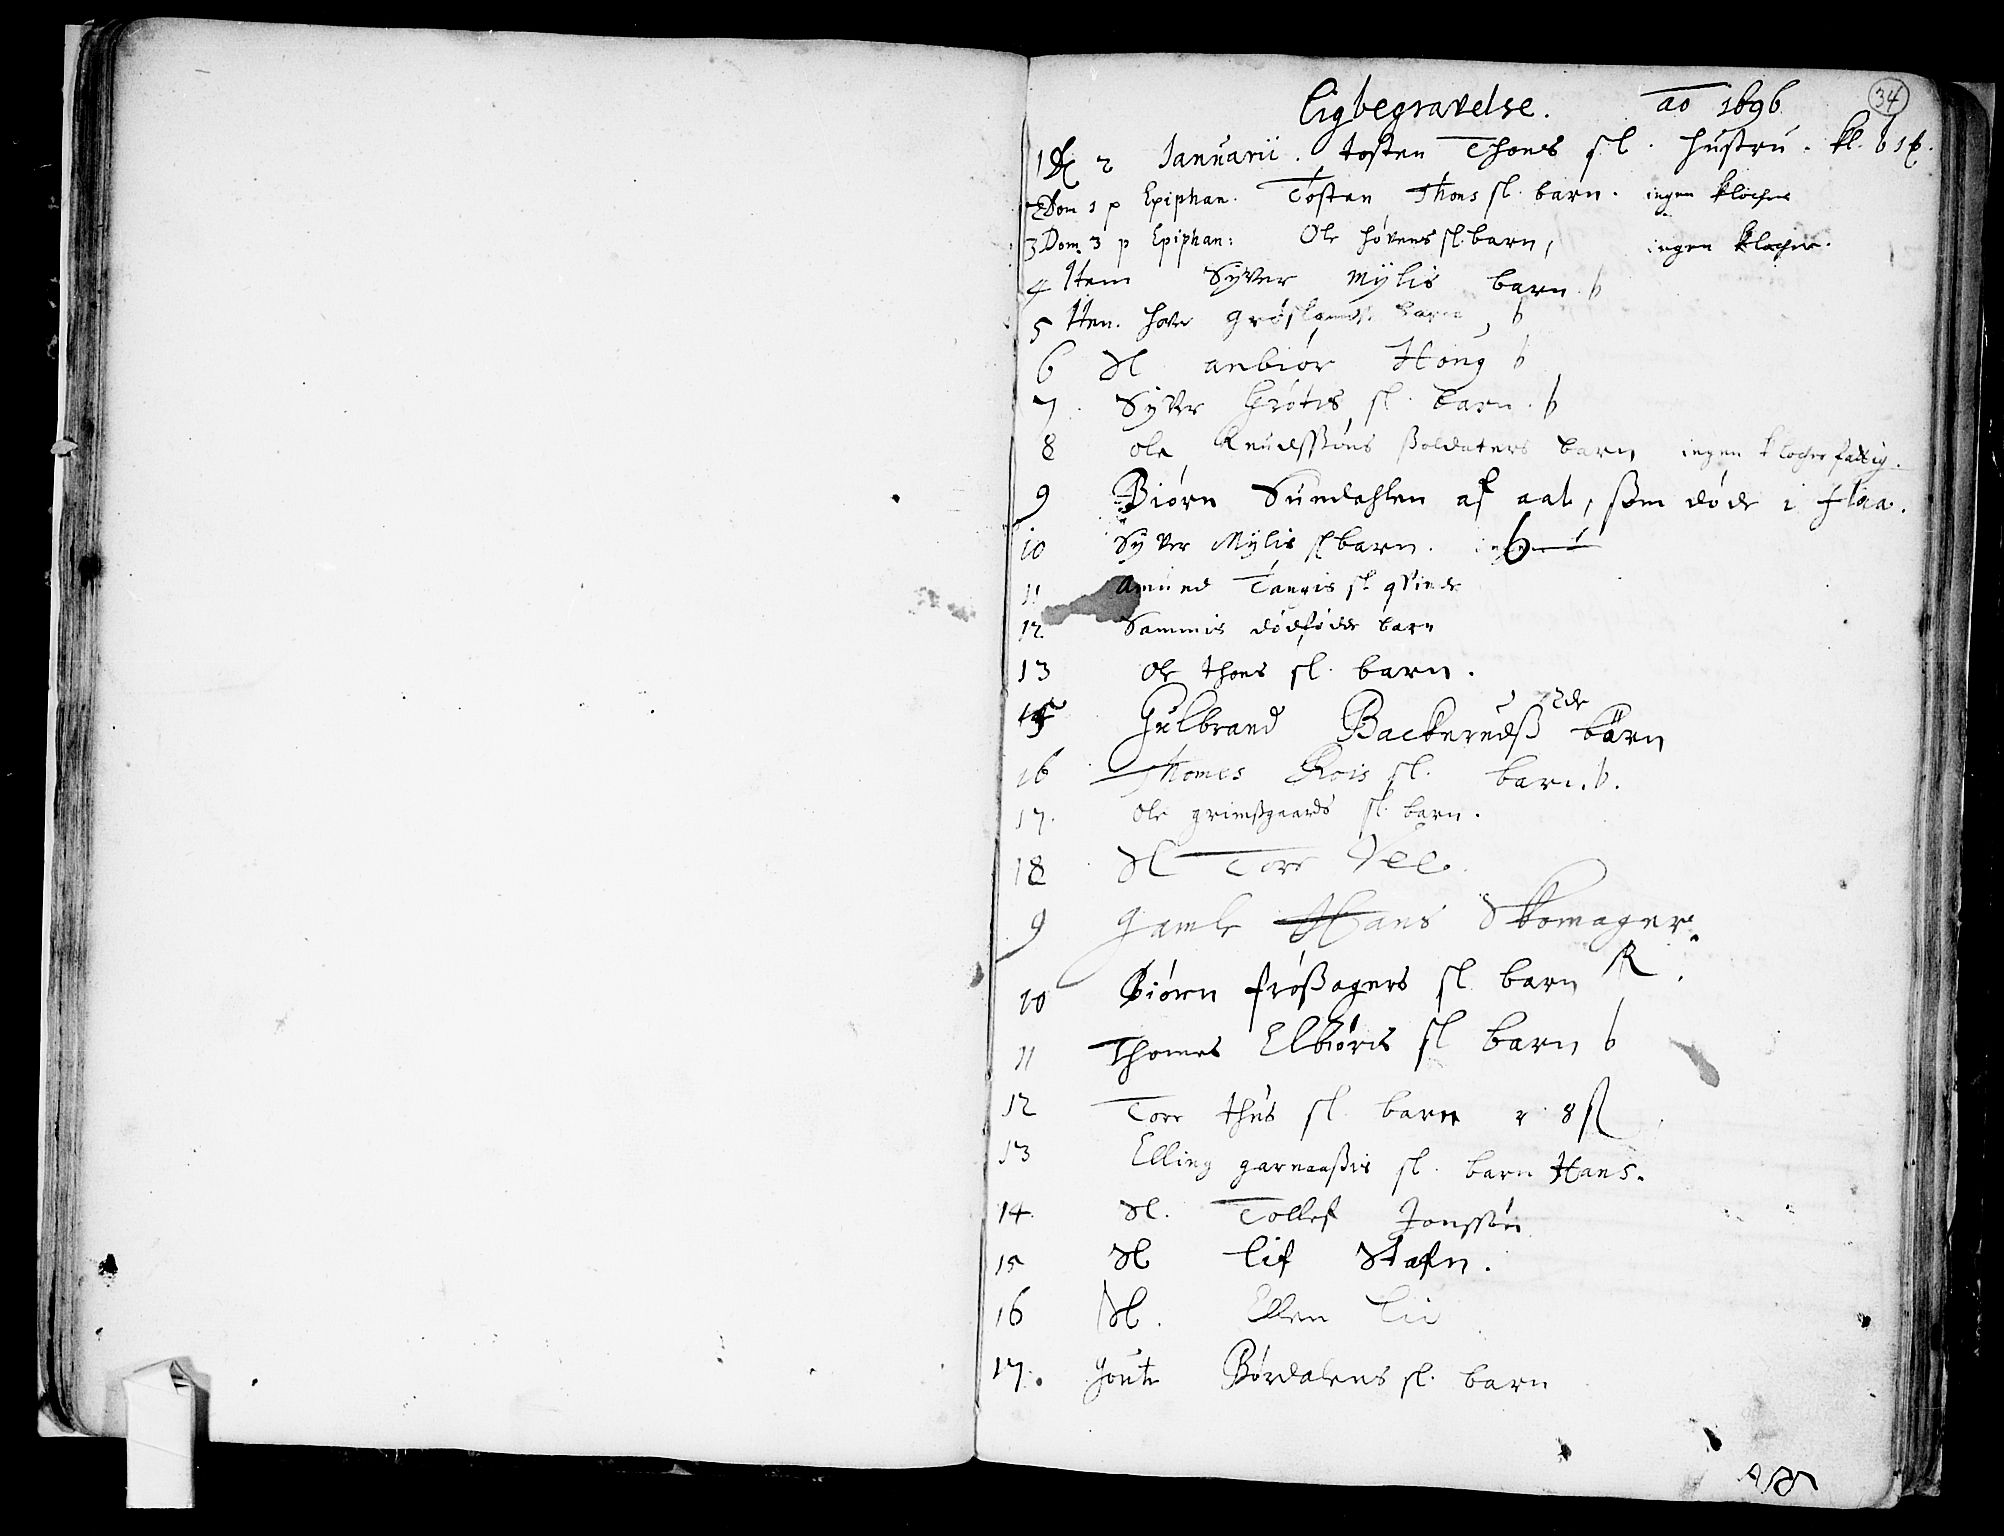 34
Ligbegravelse. ao 1696
1 2 Januarii. tosten Thoes sl. hustru. kl. b 1
2 Dom 1 p Epiphan. Tosten Thoes sl. barn. ingen klocher
3 Dom. 3 p Epiphan: Ole høvens sl. barn, ingen klocher.
4 Item Syver Mylis barn. b
5 Item. barn, b
6 Sl anbiør Houg b
7. Syver Grøtes sl. barn. b
8 ole Knudssøns Soldaters barn ingen klocher fattig.
9 Biørn Sundahlen af aal, som døde i flaa.
10 Syver Mylis sl barn. b
11 Amund sl. qvinde
12 Sammis dødføde barn
13 Ole thoes sl. barn.
Gulbrand Backerudß 2de
børn
16 Thomes Rois sl. barn. b.
17. Ole grimsgaards sl. barn.
18 Sl Tore Vee.
9 Gamle Hans Skomager.
10 Biørn frøsagers sl. barn R.
11 Thomes Elbiøris sl barn b
12 Tore thus sl. barn r. 8 sl
13 Elling garnaasis sl. barn Hans.
14. Sl. Tollef Jonssøn
15 Sl Lif Stafn.
16 Sl. Ellen Lii
17. goute Børdalens sl. barn